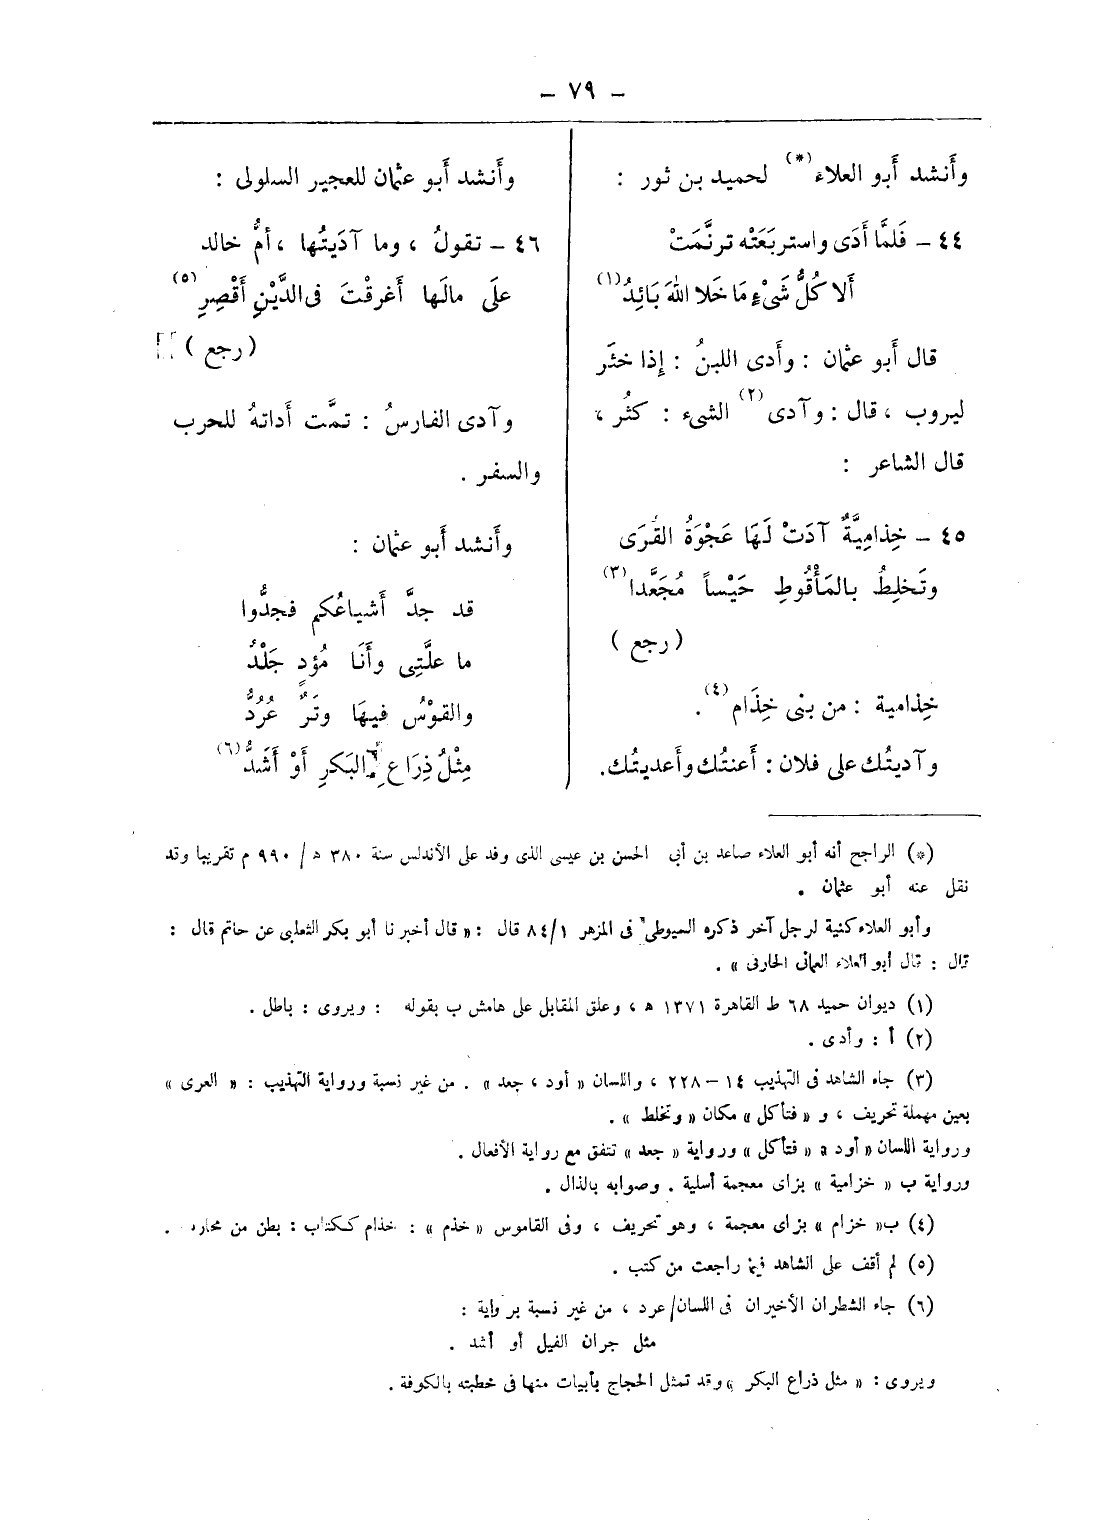 – ٧٩ –
وأَنشد أَبو العلاء (*) لحميد بن ثور :
٤٤ – فَلمَّا أَدَى واستربَعَتْه ترنَّمَتْ
أَلا كُلُّ شَىْءٍ مَا خَلا اللهَ بَائِدُ (١)
قال أَبو عثمان : وأَدى اللبنُ : إذا خثَر
ليروب ، قال : وآدى (٢) الشىء : كثُر ،
قال الشاعر :
٤٥ – خِذامِيَّةٌ آدَتْ لَهَا عَجْوَةُ القُرَى
وتَخلِطُ بالمَأْقُوطِ حَيْساً مُجَعَّدا (٣)
( رجع )
خِذامية : من بنى خِذَام (٤) .
وآديتُك على فلان : أَعنتُك وأَعديتُك .
وأَنشد أَبو عثمان للعجير السلولى :
٤٦ – تقولُ ، وما آدَيتُها ، أمُّ خالد
علَى مالَها أَغرقْتَ فى الدَّيْنِ أَقْصِرِ (٥)
( رجع )
وآدى الفارسُ : تمَّت أَداتهُ للحرب
والسفر .
وأَنشد أَبو عثمان :
قد جدَّ أَشياعُكم فجدُّوا
ما علَّتِى وأَنَا مُؤدٍ جَلْدُ
والقوْسُ فيهَا وتَرٌ عُرُدُّ
مِثْلُ ذِرَاعِ البَكرِ أَوْ أَشَدُّ (٦)
(*) الراجح أنه أبو العلاء صاعد بن أبى الحسن بن عيسى الذى وفد على الأندلس سنة ٣٨٠ ه / ٩٩٠ م تقريبا وقد
نقل عنه أبو عثمان .
وأبو العلاء كنية لرجل آخر ذكره السيوطى فى المزهر ٨٤/١ قال : « قال أخبرنا أبو بكر الثعلبى عن حاتم قال :
قال : قال أبو العلاء العمانى الحارثى » .
(١) ديوان حميد ٦٨ ط القاهرة ١٣٧١ ه ، وعلق المقابل على هامش ب بقوله : ويروى : باطل .
(٢) أ : وأدى .
(٣) جاء الشاهد فى التهذيب ١٤ – ٢٢٨ ، واللسان « أود ، جعد » . من غير نسبة ورواية التهذيب : « العرى »
بعين مهملة تحريف ، و « فتأكل » مكان « وتخلط » .
ورواية اللسان « أود » « فتأكل » ورواية « جعد » تتفق مع رواية الأفعال .
ورواية ب « خزامية » بزاى معجمة أسلية . وصوابه بالذال .
(٤) ب « خزام » بزاى معجمة ، وهو تحريف ، وفى القاموس « خذم » : خذام ككتاب : بطن من محارب .
(٥) لم أقف على الشاهد فيما راجعت من كتب .
(٦) جاء الشطران الأخيران فى اللسان/عرد ، من غير نسبة برواية :
مثل جران الفيل أو أشد .
ويروى : « مثل ذراع البكر » وقد تمثل الحجاج بأبيات منها فى خطبته بالكوفة .